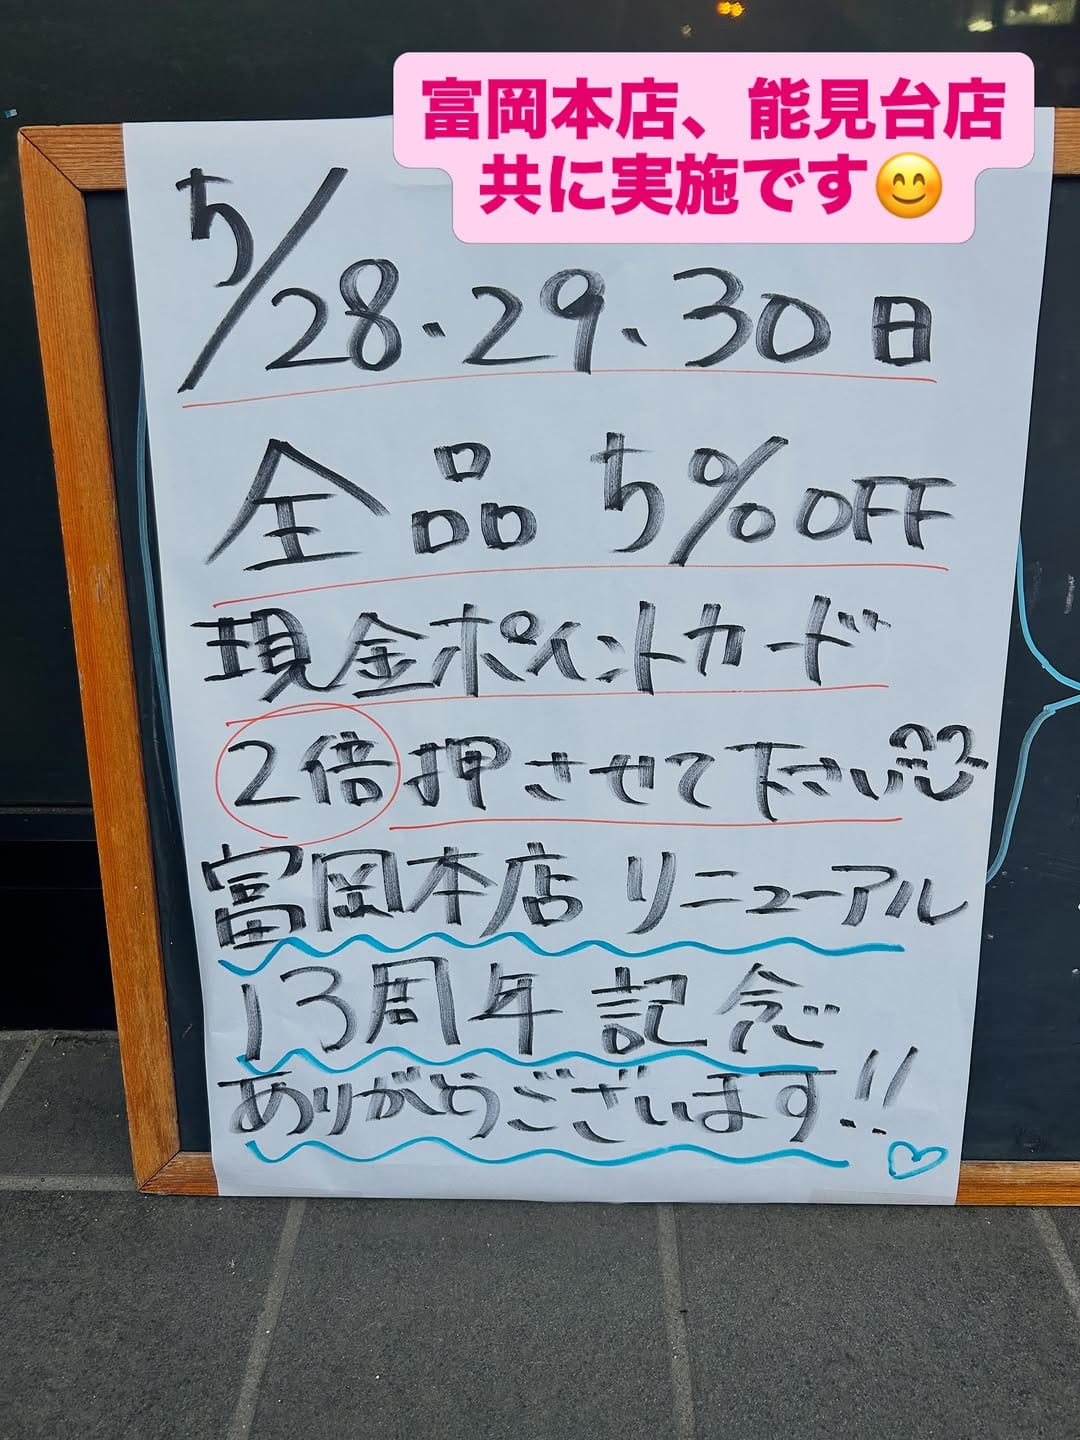 富岡本店、能見台店
共に実施です😊
5/28.29.30日
全品 5%OFF
現金ポイントカード
2倍押させて下さい
富岡本店 リニューアル
13周年記念
ありがとうございます!!